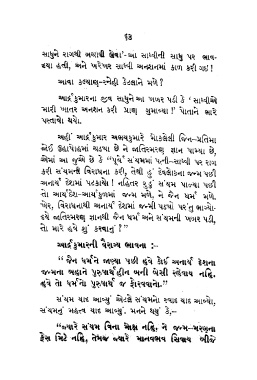 ૧૩
સાધુને રાગથી ભયાવી દેવા’-આ સાધ્વીની સાધુ પર ભાવ-
દયા હતી, અને ખરેખર સાધ્વી અનશનમાં કાળ કરી ગઈ!
આવા કલ્યાણ-સ્નેહી કેટલાને મળે?
આર્દ્રકુમારના જીવ સાધુને આ ખબર પડી કે ‘સાધ્વીએ
મારી ખાતર અનશન કરી પ્રાણ ગુમાવ્યા!’ પોતાને ભારે
પસ્તાવો થયો.
અહીં આર્દ્રકુમાર અભયકુમારે મોકલેલી જિન-પ્રતિમા
જોઈ ઊહાપોહમાં ચડ્યા છે ને જાતિસ્મરણ જ્ઞાન પામ્યા છે,
એમાં આ જુએ છે કે “પૂર્વે સંયમમાં પત્ની-સાધ્વી પર રાગ
કરી સંયમની વિરાધના કરી, તેથી હું દેવલોકના જન્મ પછી
અનાર્ય દેશમાં પટકાયો! નહિતર રૂડું સંયમ પાળ્યા પછી
તો આર્યદેશ-આર્યકુળમાં જન્મ મળે, ને જૈન ધર્મ મળે.
ખેર, વિરાધનાથી અનાર્ય દેશમાં જન્મી પડ્યો પરંતુ ભાગ્યો-
દયે જાતિસ્મરણ જ્ઞાનથી જૈન ધર્મ અને સંયમની ખબર પડી,
તો મારે હવે શું કરવાનું?”
આર્દ્રકુમારની વૈરાગ્ય ભાવના :-
“જૈન ધર્મને જાણ્યા પછી હવે કોઈ અનાર્ય દેશના
જન્મના બહાને પુરુષાર્થહીન બની બેસી રહેવાય નહિ.
હવે તો ધર્મનો પુરુષાર્થ જ ફોરવવાનો.”
સંયમ યાદ આવ્યું એટલે સંયમનો સ્વાદ યાદ આવ્યો,
સંયમનું મહત્વ યાદ આવ્યું. મનને થયું કે,-
“જ્યારે સંયમ વિના મોક્ષ નહિ, ને જન્મ-મરણના
ફેરા મિટે નહિ, તેમજ જ્યારે માનવભવ સિવાય બીજે